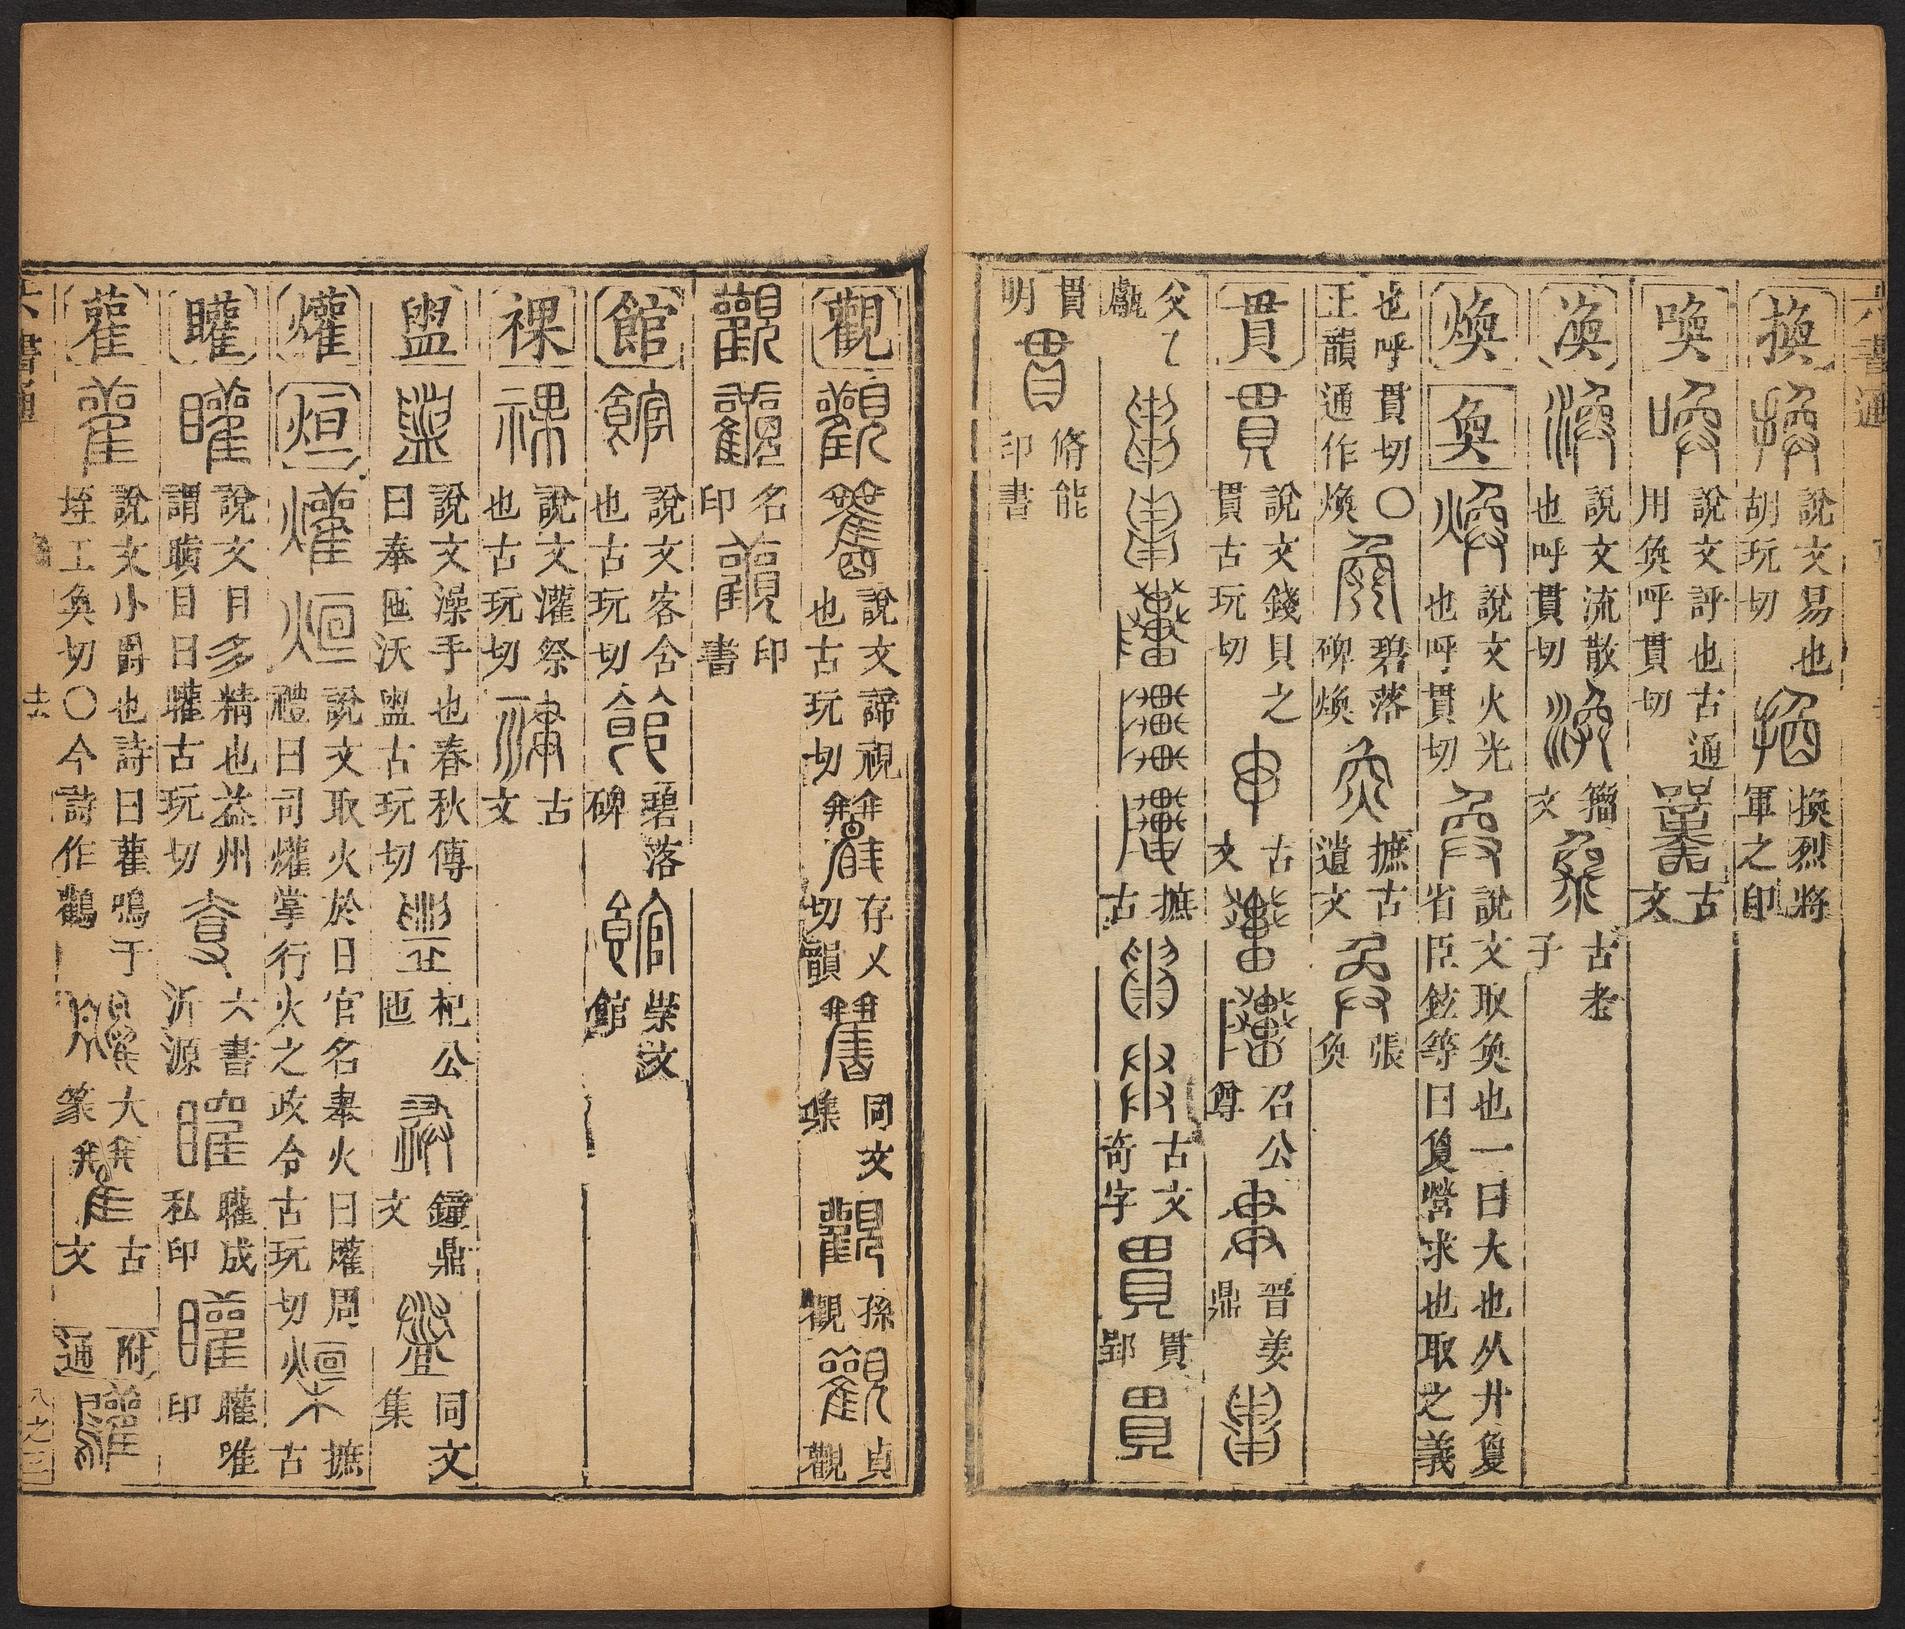 六書通
換 說文易也胡玩切 換烈將軍之印
喚 說文評也古通用奐呼貫切 古文
渙 說文流散也呼貫切 籀文 古老子
煥 奐 說文火光也呼貫切 說文取奐也一曰大也从廾敻省臣鉉等曰敻營求也取之義
也呼貫切〇正韻通作煥 碧落碑煥 摭古遺文 張奐
貫 說文錢貝之貫古玩切 古文 召公尊 晉姜鼎
父乙甗 摭古 古文奇字 貫郢
貫明 脩能印書
觀 說文諦視也古玩切 存乂切韻 同文集 孫觀 貞觀
名印 印書
館 說文客舍也古玩切 碧落碑 柴文館
祼 說文灌祭也古玩切 古文
盥 說文澡手也春秋傳曰奉匜沃盥古玩切 杞公匜 鐘鼎文 同文集
爟 烜 說文取火於日官名舉火曰爟周禮曰司爟掌行火之政令古玩切 摭古
矔 說文目多精也益州謂瞋目曰矔古玩切 六書泝源 矔成私印 矔唯印
雚 說文小爵也詩曰雚鳴于垤工奐切〇今詩作鸛 大篆 古文 附通
六書通
去
八之三